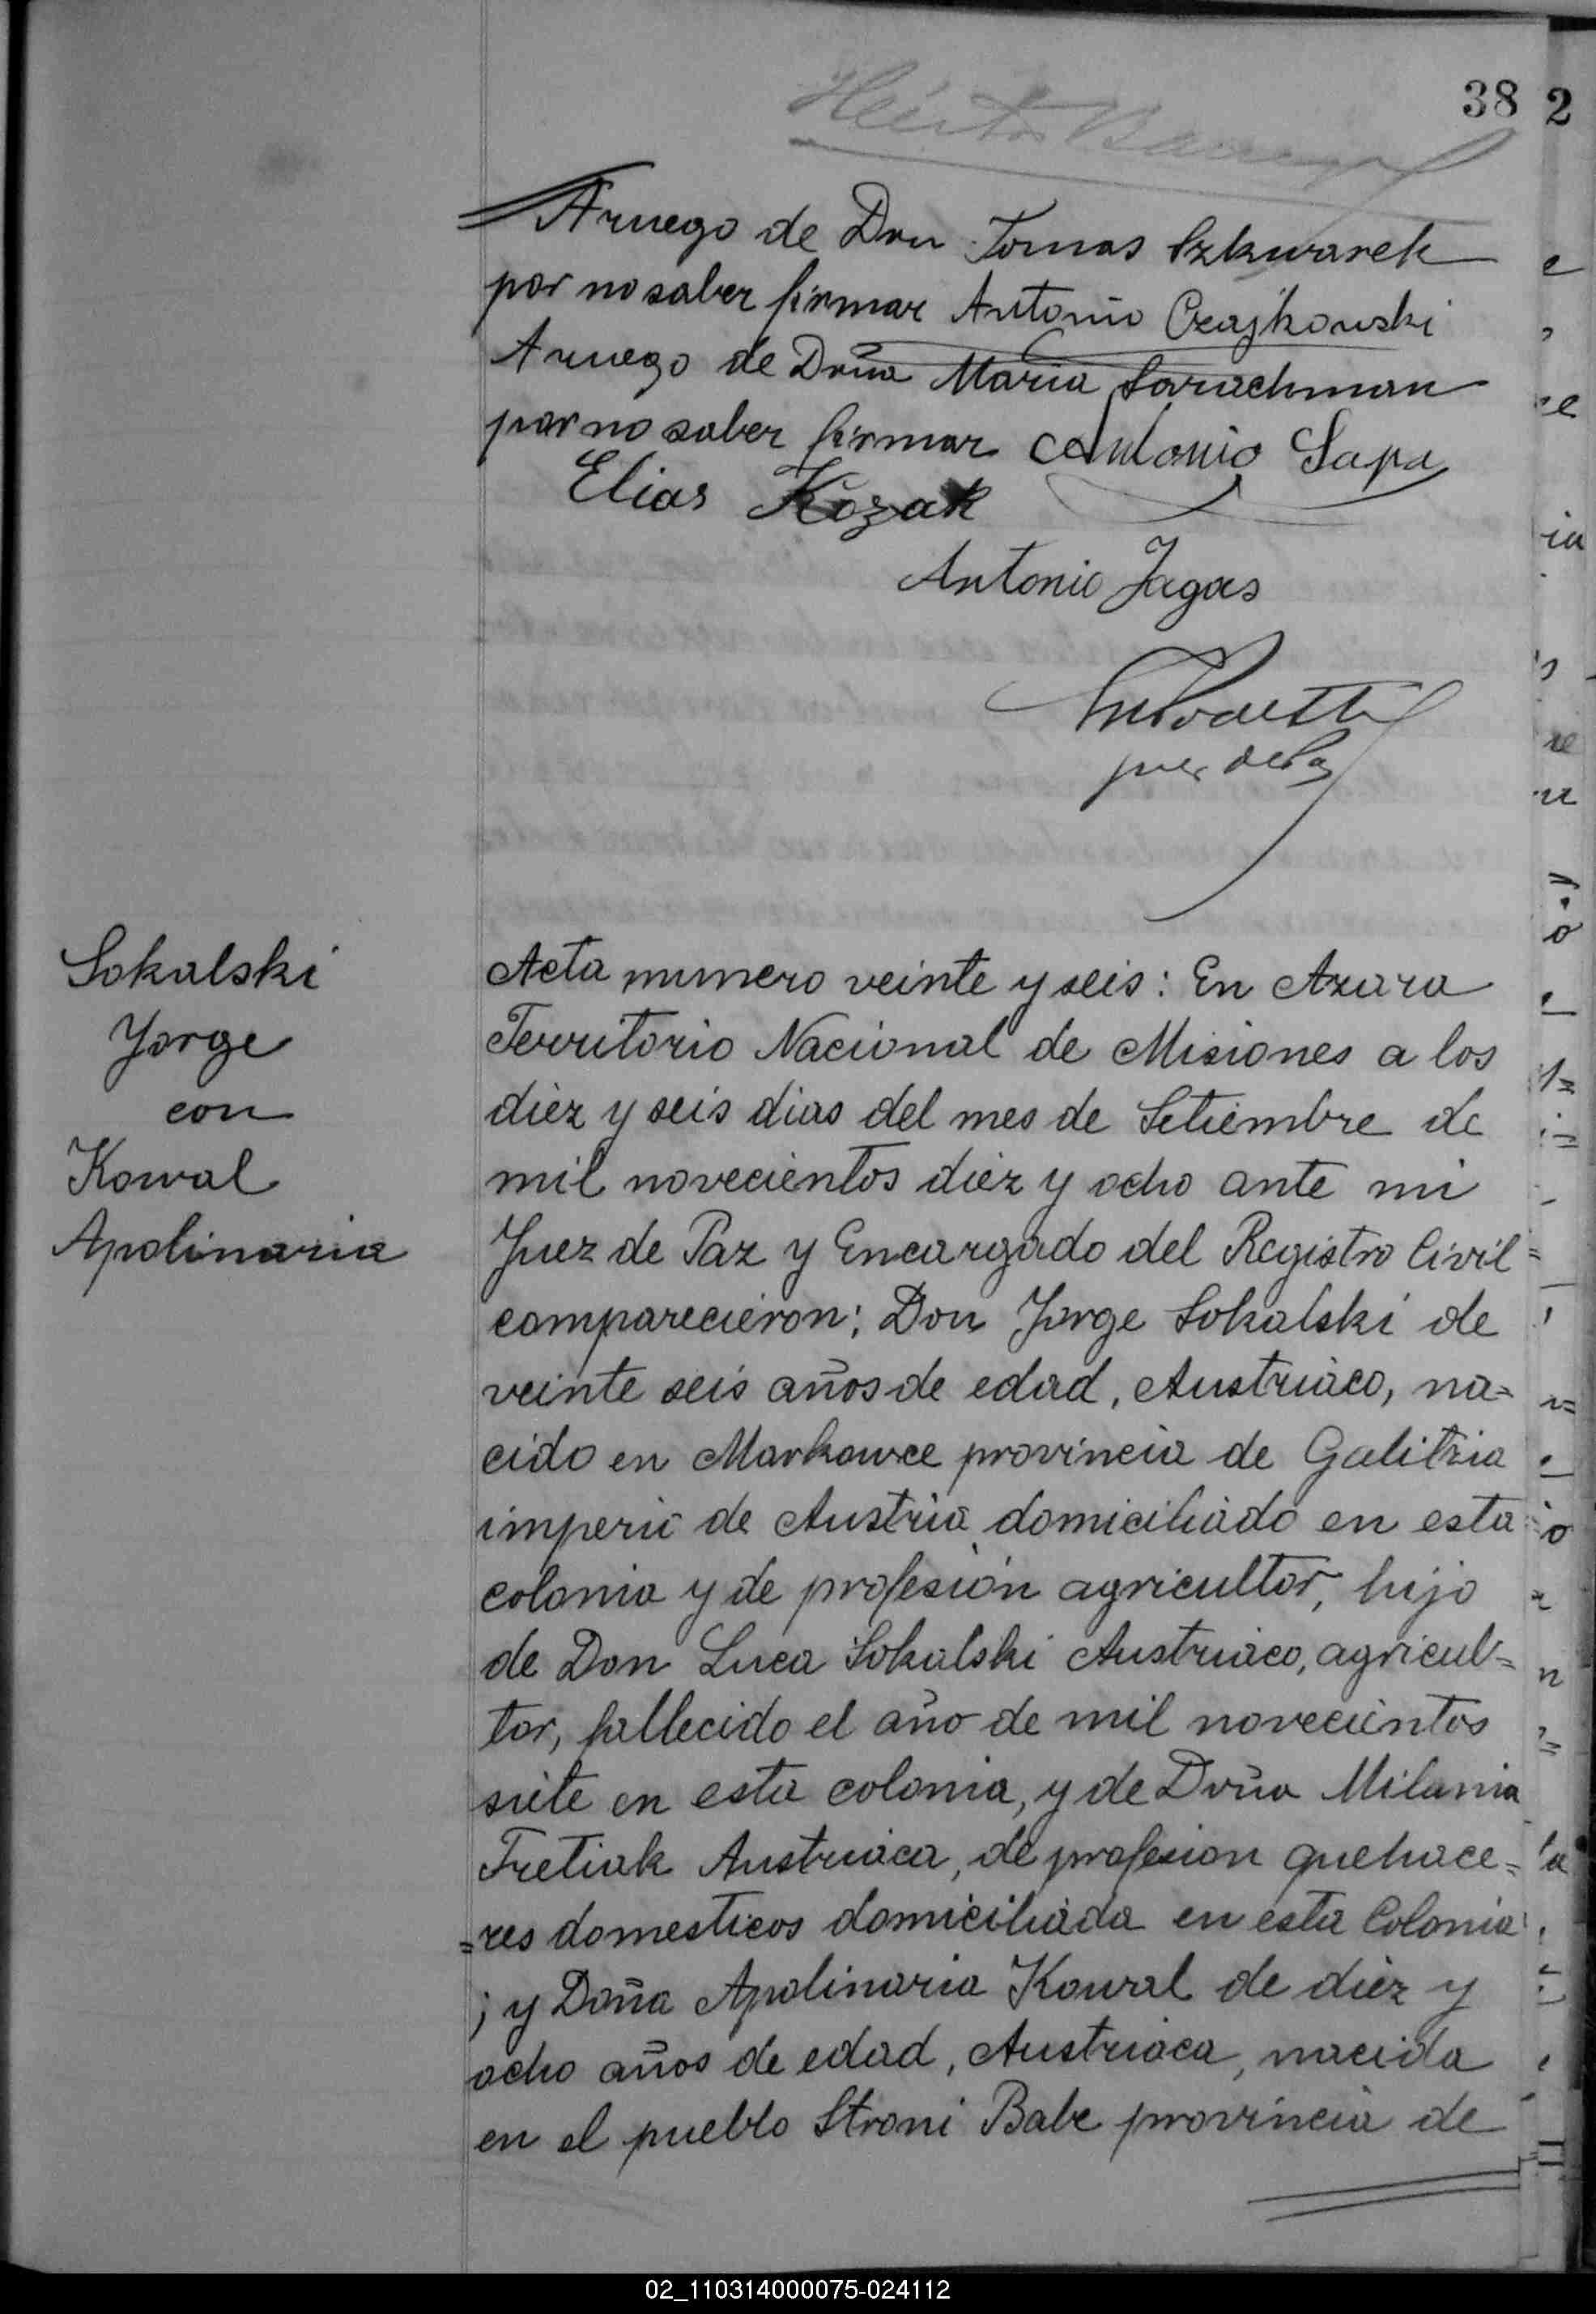 38 2
Aruego de Don Tomas Szkwarek
por no saber firmar Antonio Czajkowski
Aruego de Doña Maria Sarachman
por no saber firmar Antonio Sapa
Elias Kozak
Antonio Jagas
juez de Paz
Sokalski
Jorge
con
Kowal
Apolinaria
Acta numero veinte y seis: En Azara
Territorio Nacional de Misiones a los
diez y seis dias del mes de Setiembre de
mil novecientos diez y ocho ante mi
Juez de Paz y Encargado del Registro Civil
comparecieron: Don Jorge Sokalski de
veinte seis años de edad, Austriaco, na=
cido en Markowce provincia de Galitzia
imperio de Austria domiciliado en esta
colonia y de profesión agricultor, hijo
de Don Luca Sokalski Austriaco, agricul=
tor, fallecido el año de mil novecientos
siete en esta colonia, y de Doña Milania
Tretiak Austriaca, de profesion quehace=
=res domesticos domiciliada en esta Colonia
; y Doña Apolinaria Kowal de diez y
ocho años de edad, Austriaca, nacida
en el pueblo Stroni Babe provincia de
02_110314000075-024112